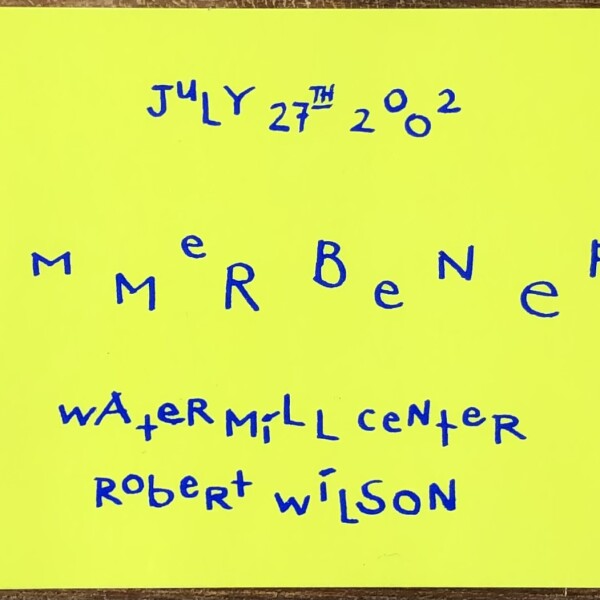 JULY 27TH 2002
MMeR BeNeF
WAteRMiLL CeNteR
RObeRt WiLSON